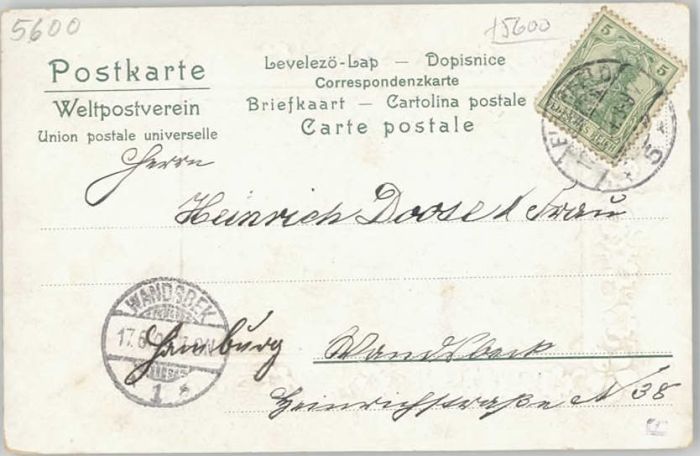 5600
5600
Postkarte
Weltpostverein
Union postale universelle
Levelező-Lap — Dopisnice
Correspondenzkarte
Briefkaart — Cartolina postale
Carte postale
5 5
DEUTSCHES REICH
Herrn
Heinrich Doose & Frau
WANDSBEK
17.6
1
Hamburg Wandsbeck
Heinrichstraße N 38